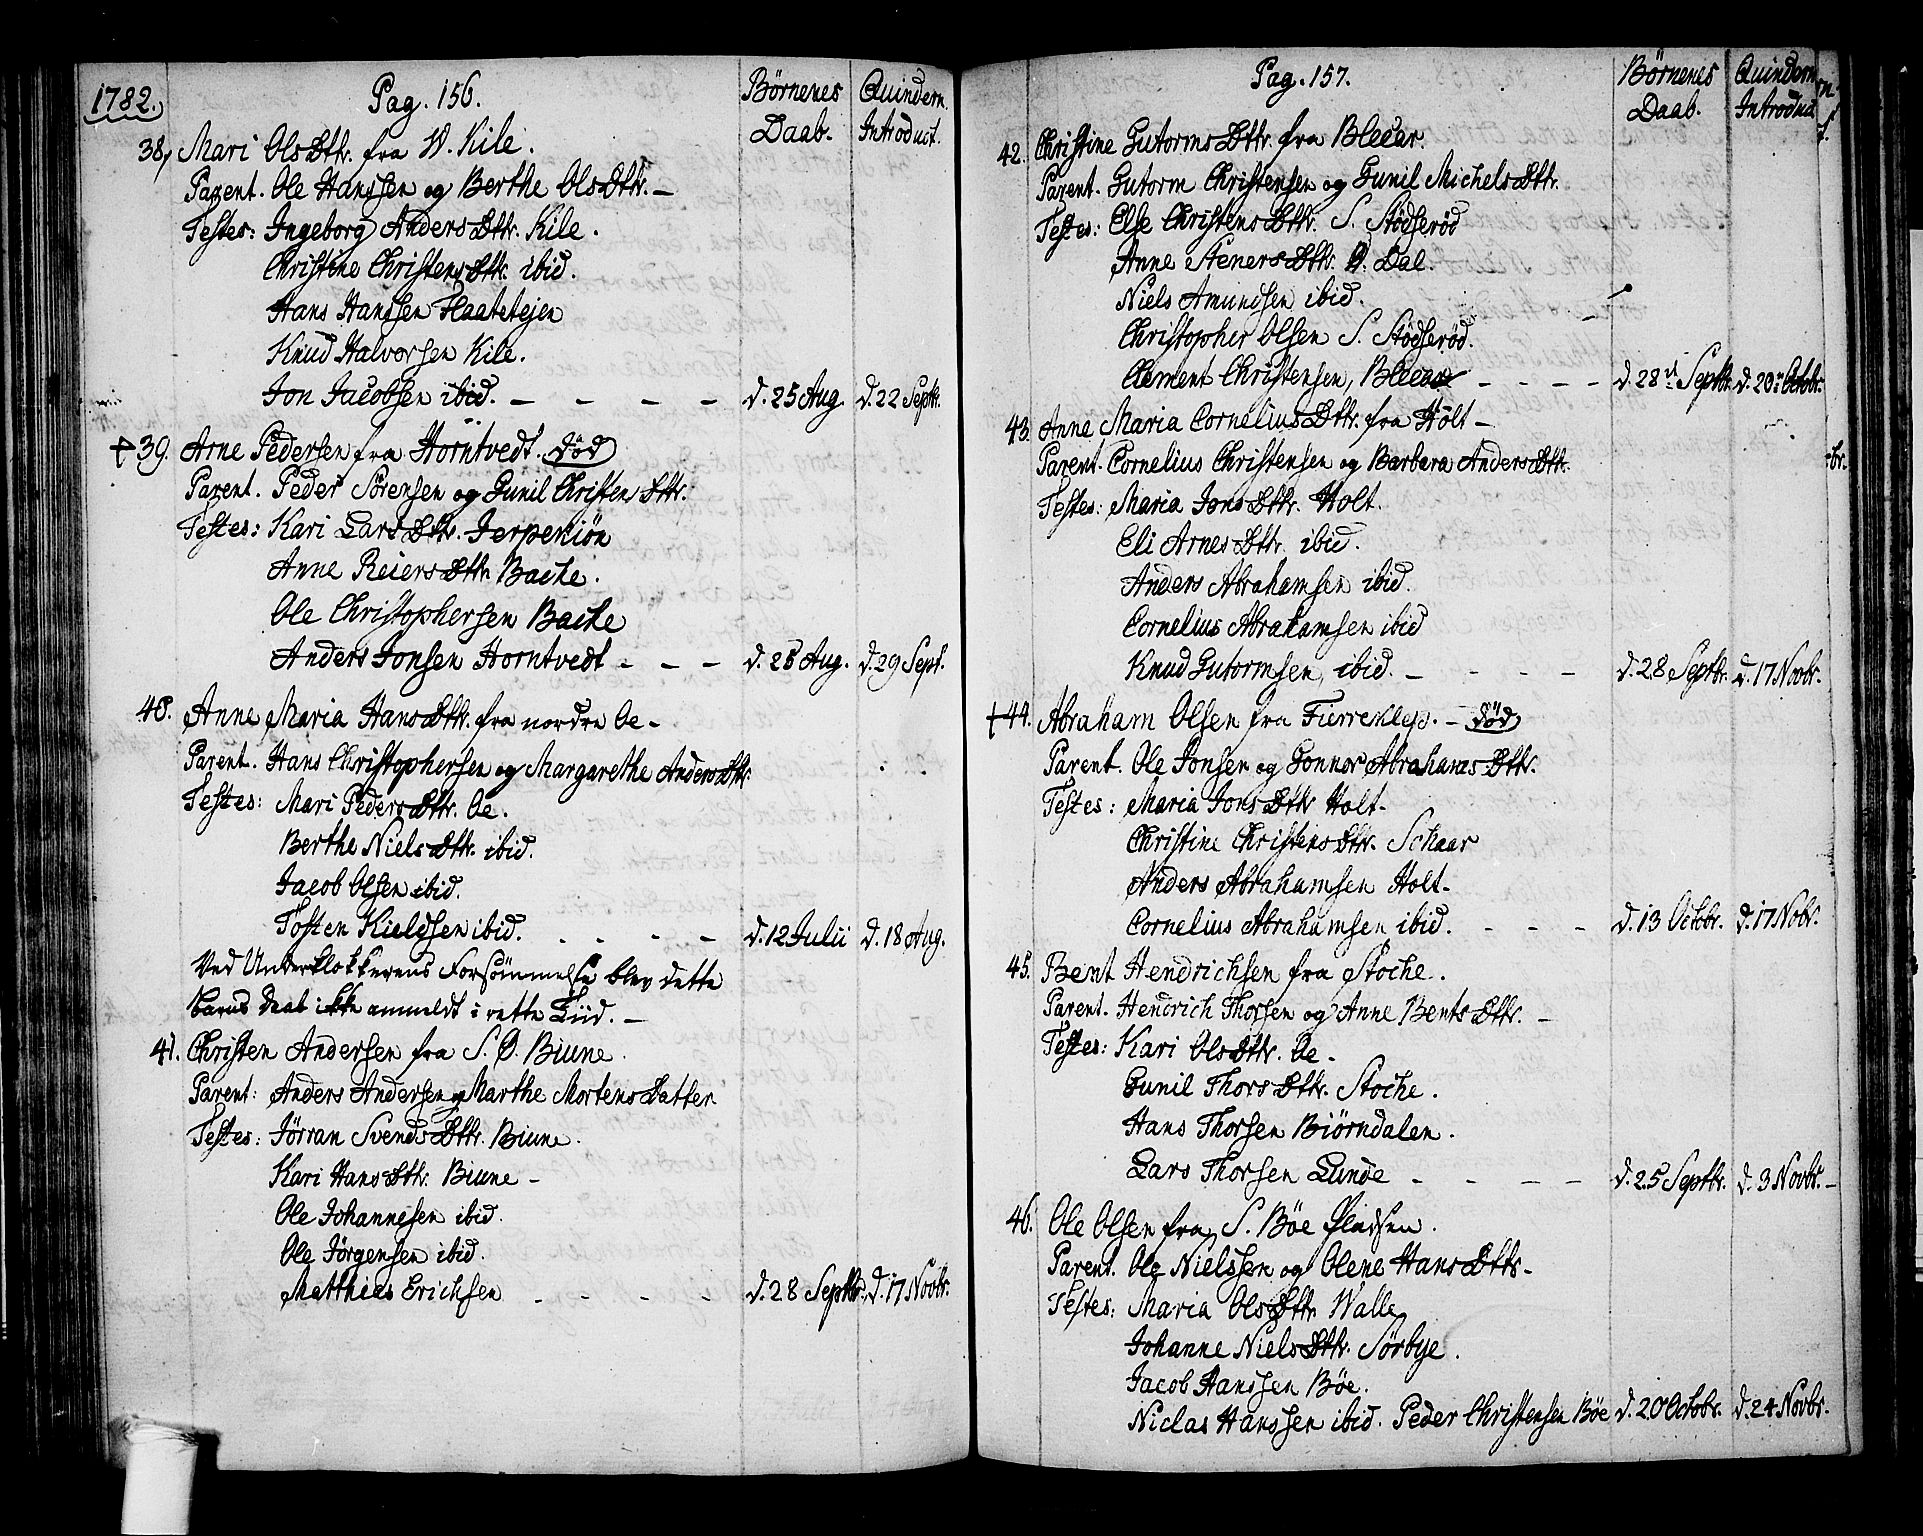 1782.
Pag. 156.
Börnenes Daab.
Quindern. Introduct.
38, Mari OlsDttr. fra W. Kile.
Parent. Ole Hanssen og Berthe OlsDttr. –
Testes: Ingeborg AndersDttr. Kile.
Christine ChristensDttr. ibid.
Hans Hanssen Flaatetejen
Knud Halvorsen Kile.
Jon Jacobsen ibid. – – – – d. 25 Aug. d. 22 Septb.
† 39. Arne Pedersen fra Horntvedt. død
Parent. Peder Sörensen og Gunil ChristenDttr.
Testes: Kari LarsDttr. Jerpekiön
Anne ReiersDttr. Backe.
Ole Christophersen Backe
Anders Jonsen Horntvedt – – – d. 28 Aug. d. 29 Sept.
40. Anne Maria HansDttr. fra nordre Oe –
Parent. Hans Christophersen og Margarethe AndersDttr.
Testes: Mari PedersDttr. Oe.
Berthe NielsDttr. ibid.
Jacob Olsen ibid.
Tosten Kieldsen ibid. – – – – d. 12 Julii d. 18 Aug.
Ved Underklokkerens Forsömmelse blev dette
Barns Daab ikke anmeldt i rette Tiid. –
41. Christen Andersen fra S. Ø. Biune.
Parent: Anders Andersen og Marthe MortensDatter
Testes: Jörran SvendsDttr. Biune.
Kari HansDttr. Biune –
Ole Johannesen ibid.
Ole Jörgensen ibid.
Matthies Erichsen – – – – d. 28 Septbr. d. 17 Novbr.
Pag. 157.
Börnenes Daab.
Quindern Introduct
42. Christine GutormsDttr. fra Bleear.
Parent. Gutorm Christensen og Gunil MichelsDttr.
Testes: Else ChristensDttr. S. Stödseröd
Anne StenersDttr. Dal.
Niels Amundsen ibid.
Christopher Olsen S. Stödseröd.
Clement Christensen, Bleear – – – – d. 28 Septbr. d. 20 Octobr.
43. Anne Maria CorneliusDttr. fra Holt –
Parent. Cornelius Christensen og Barbara AndersDttr.
Testes: Maria JonsDttr. Holt.
Eli ArnesDttr. ibid.
Anders Abrahamsen ibid.
Cornelius Abrahamsen ibid
Knud Gutormsen, ibid. – – – – d. 28 Septbr. d. 17 Novbr.
† 44. Abraham Olsen fra Fierreklep. – död
Parent. Ole Jonsen og Gonnor AbrahamsDttr.
Testes: Maria JonsDttr. Holt –
Christine ChristensDttr. Skaar
Anders Abrahamsen Holt –
Cornelius Abrahamsen ibid. – – – d. 13 Octobr. d. 17 Nobr.
45. Bent Hendrichsen fra Stoche.
Parent. Hendrich Thorsen og Anne BentsDttr. –
Testes: Kari OlsDttr. Oe –
Gunil ThorsDttr. Stoche.
Hans Thorsen Biörndalen.
Lars Thorsen Lunde – – – – d. 25 Septbr. d. 3 Novbr. –
46. Ole Olsen fra S. Böe
Parent. Ole Nielssen og Olene HansDttr –
Testes: Maria OlsDttr. Walle
Johanne NielsDttr. Sörbye.
Jacob Hanssen Böe.
Niclas Hanssen ibid. Peder Christensen Böe d. 20 Octobr. d. 24 Novbr.